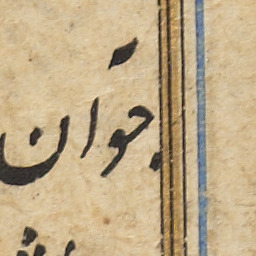 جوان